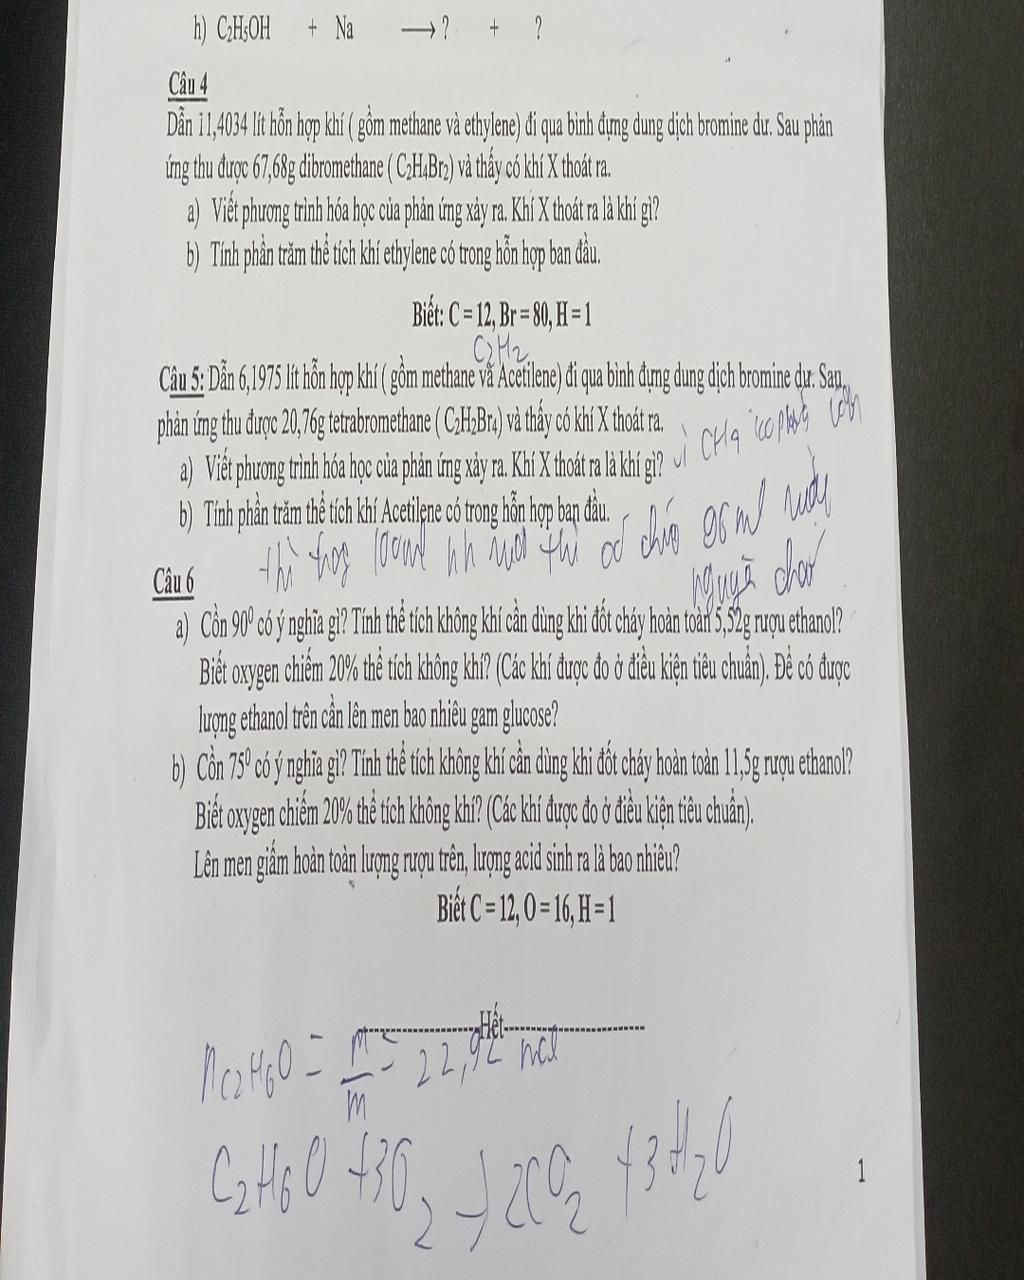 h) C₂H₅OH + Na ⟶ ? + ?
Câu 4
Dẫn 11,4034 lít hỗn hợp khí ( gồm methane và ethylene) đi qua bình đựng dung dịch bromine dư. Sau phản
ứng thu được 67,68g dibromethane ( C₂H₄Br₂) và thấy có khí X thoát ra.
a) Viết phương trình hóa học của phản ứng xảy ra. Khí X thoát ra là khí gì?
b) Tính phần trăm thể tích khí ethylene có trong hỗn hợp ban đầu.
Biết: C = 12, Br = 80, H = 1
C2H2
Câu 5: Dẫn 6,1975 lít hỗn hợp khí ( gồm methane và Acetilene) đi qua bình đựng dung dịch bromine dư. Sau
phản ứng thu được 20,76g tetrabromethane ( C₂H₂Br₄) và thấy có khí X thoát ra.
a) Viết phương trình hóa học của phản ứng xảy ra. Khí X thoát ra là khí gì?
vì CH4
b) Tính phần trăm thể tích khí Acetilene có trong hỗn hợp ban đầu.
thì 100ml thì có 96ml rượu
nguyên chất
Câu 6
a) Cồn 90⁰ có ý nghĩa gì? Tính thể tích không khí cần dùng khi đốt cháy hoàn toàn 5,52g rượu ethanol?
Biết oxygen chiếm 20% thể tích không khí? (Các khí được đo ở điều kiện tiêu chuẩn). Để có được
lượng ethanol trên cần lên men bao nhiêu gam glucose?
b) Cồn 75⁰ có ý nghĩa gì? Tính thể tích không khí cần dùng khi đốt cháy hoàn toàn 11,5g rượu ethanol?
Biết oxygen chiếm 20% thể tích không khí? (Các khí được đo ở điều kiện tiêu chuẩn).
Lên men giấm hoàn toàn lượng rượu trên, lượng acid sinh ra là bao nhiêu?
Biết C = 12, O = 16, H = 1
Hết
nC2H6O = m/m = 22,92 mol
C2H6O + 3O2 → 2CO2 + 3H2O
1